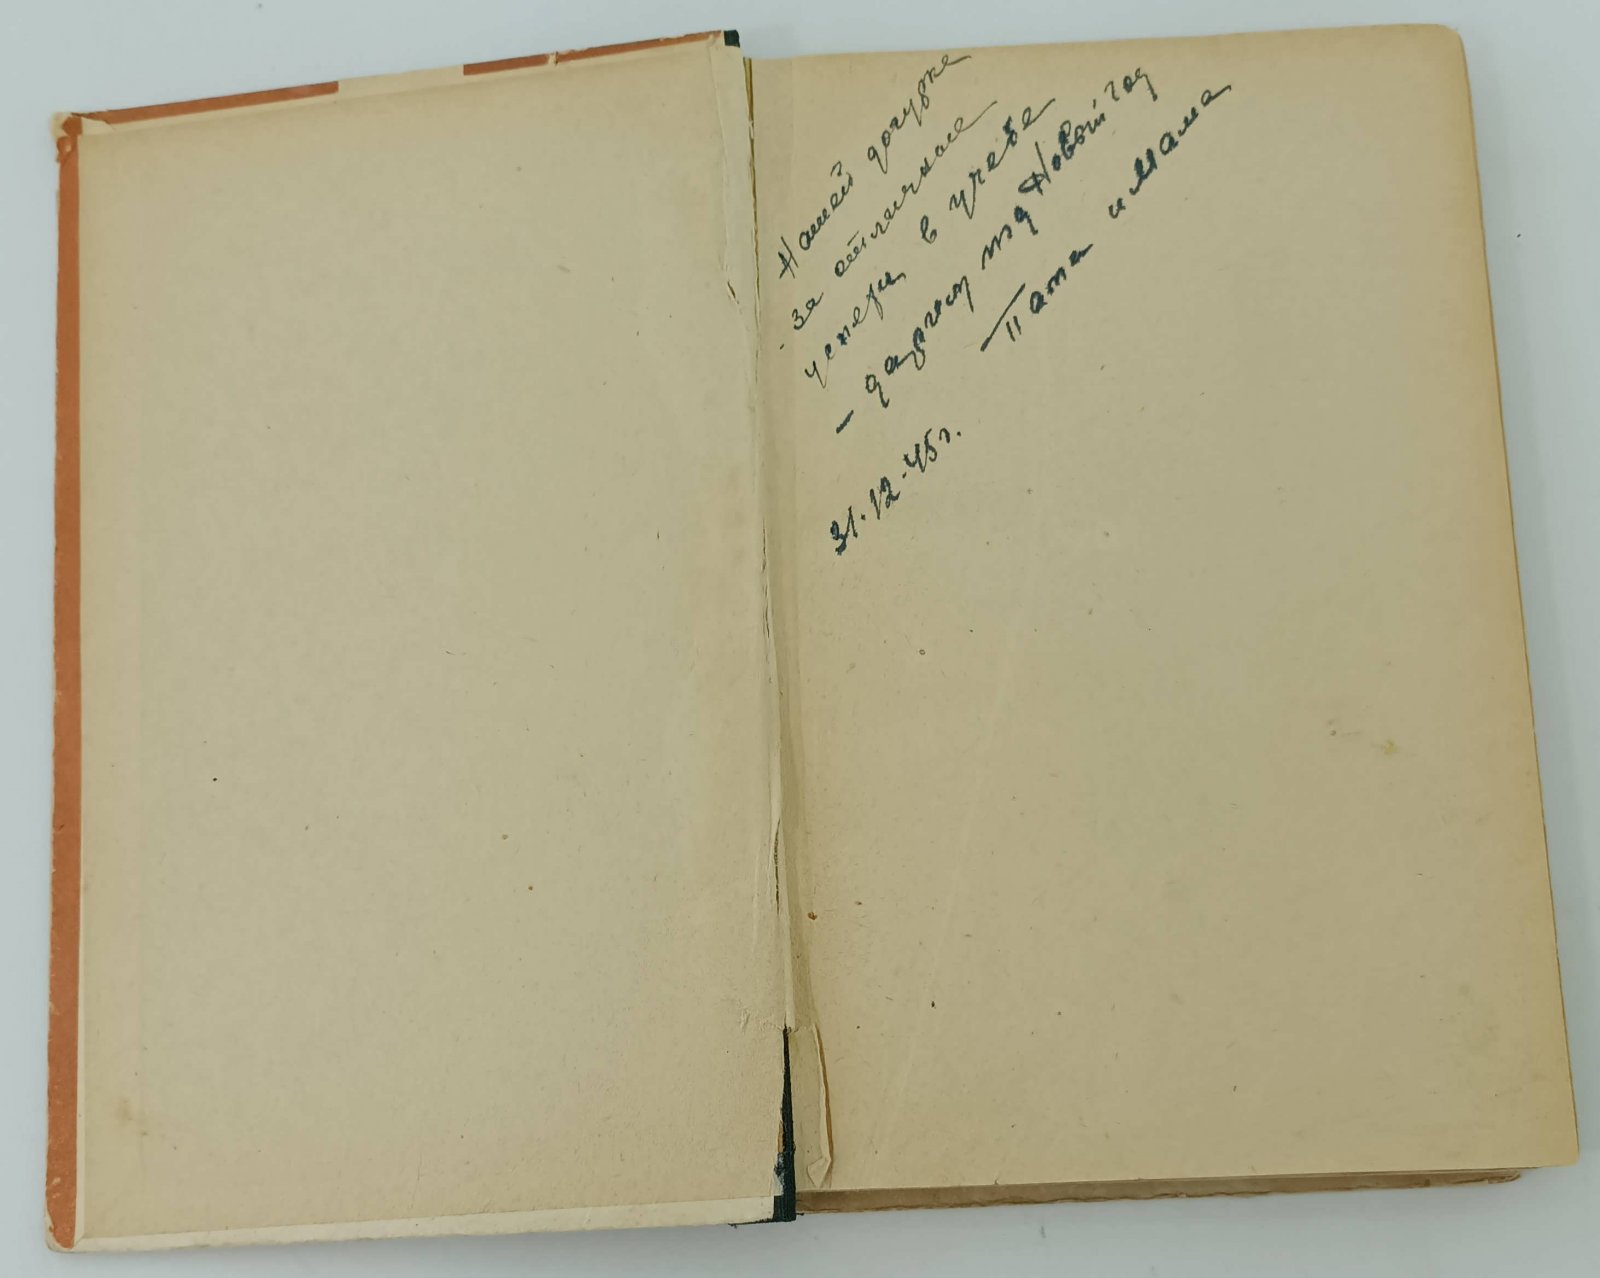 Нашей дочурке
за отличные
успехи в учебе
– дарим под Новый год
Папа и Мама
31.12.45г.